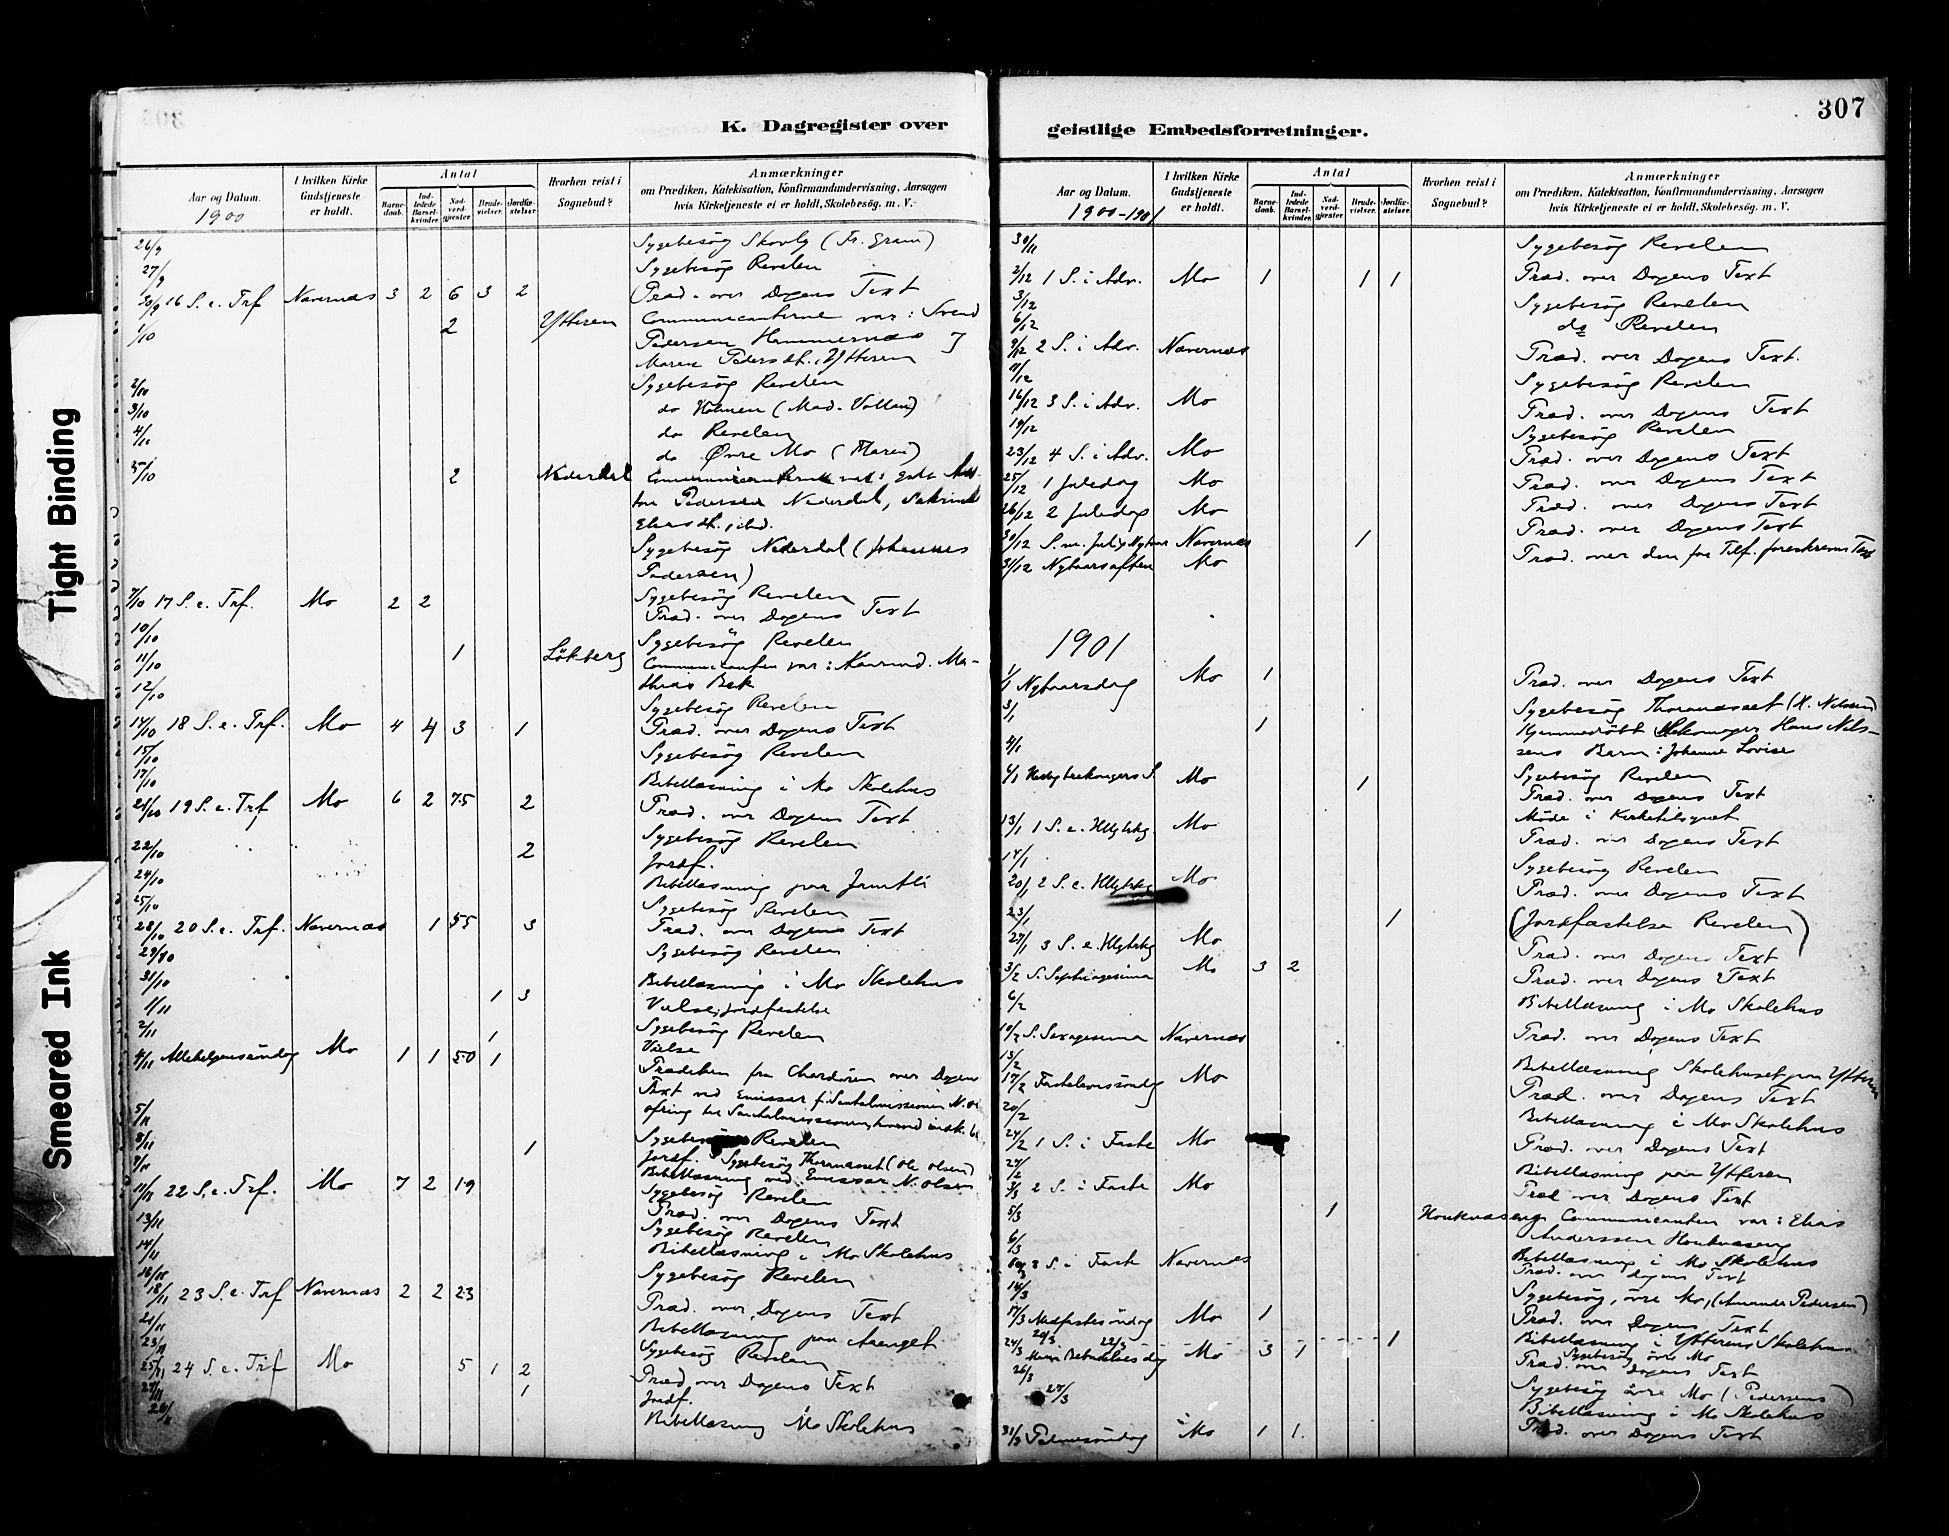 Tight Binding
Smeared Ink
K. Dagregister over
Aar og Datum.
1900
I hvilken Kirke Gudstjeneste er holdt.
Antal
Barnedaab.
Indledede Barselkvinder.
Nadverdgjester
Brudevielser.
Jordfæstelser.
Hvorhen reist i Sognebud?
Anmærkninger
om Prædiken, Katekisation, Konfirmandundervisning, Aarsagen
hvis Kirketjeneste ei er holdt, Skolebesøg. m. V.
26/9 Sygebesøg Skovly (Fr. Gram)
27/9 Sygebesøg Revelen
30/9 16 S. e. Trf Navernæs 3 2 6 3 2 Præd. over Dagens Text
1/10 2 Ytteren Communicanterne var: Svend
Pedersen Hammernæs og
Maren Pedersdt. Ytteren
2/10 Sygebesøg Revelen
3/10 do Holmen (Mad. Volland)
4/10 do Revelen
do Øvre Mo (Maren)
5/10 2 Nederdal
Pedersen Nederdal,
Eliasdt. ibd.
Sygebesøg Nederdal (Johannes
Pedersen)
Sygebesøg Revelen
7/10 17 S. e. Trf. Mo 2 2 Præd. over Dagens Text
10/10 Sygebesøg Revelen
11/10 1 Løkberg Communicanten var:
Bek
12/10 Sygebesøg Revelen
14/10 18 S. e. Trf. Mo 4 4 3 1 Præd. over Dagens Text
15/10 Sygebesøg Revelen
17/10 Bibellæsning i Mo Skolehus
21/10 19 S. e. Trf Mo 6 2 75 2 Præd. over Dagens Text
22/10 Sygebesøg Revelen
2 Jordf.
24/10 Bibellæsning paa Jamtli
25/10 Sygebesøg Revelen
28/10 20 S. e. Trf. Navernæs 1 55 3 Præd. over Dagens Text
29/10 Sygebesøg Revelen
31/10 Bibellæsning i Mo Skolehus
1/11 1 3 Vielse, jordfæstelse
2/11 Sygebesøg Revelen
1 Vielse
4/11 Allehelgenssøndag Mo 1 1 50 1 Prædiken fra Chordøren over Dagens
Text ved Emissær f. Santalmissionen N. Ol
ofring til Santalmissionen
5/11 Sygebesøg Revelen
8/11 1 Jordf. Sygebesøg Thoranæset (Ole Olsen)
9/11 Bibellæsning ved Emissær N. Olsen
Sygebesøg Revelen
11/11 22 S. e. Trf. Mo 7 2 19 Præd. over Dagens Text
13/11 Sygebesøg Revelen
14/11 Bibellæsning i Mo Skolehus
16/11 Sygebesøg Revelen
18/11 23 S. e. Trf Navernæs 2 2 23 Præd. over Dagens Text
21/11 Bibellæsning paa Aaenget
23/11 Sygebesøg Revelen
25/11 24 S. e. Trf Mo 5 1 2 Præd. over Dagens Text
27/11 1 Jordf.
28/11 Bibellæsning Mo Skolehus
geistlige Embedsforretninger.
307
Aar og Datum.
1900-1901
I hvilken Kirke Gudstjeneste er holdt.
Antal
Barnedaab.
Indledede Barselkvinder.
Nadverdgjester
Brudevielser.
Jordfæstelser.
Hvorhen reist i Sognebud?
Anmærkninger
om Prædiken, Katekisation, Konfirmandundervisning, Aarsagen
hvis Kirketjeneste ei er holdt, Skolebesøg. m. V.
30/11 Sygebesøg Revelen
2/12 1 S. i Adv. Mo 1 1 1 Præd. over Dagens Text
3/12 Sygebesøg Revelen
6/12 do Revelen
9/12 2 S. i Adv. Navernæs Præd. over Dagens Text.
11/12 Sygebesøg Revelen
16/12 3 S. i Adv. Mo Præd. over Dagens Text
19/12 Sygebesøg Revelen
23/12 4 S. i Adv. Mo Præd. over Dagens Text
25/12 1 Juledag Mo Præd. over Dagens Text
26/12 2 Juledag Mo Præd. over Dagens Text
30/12 S. m. Jul og Nytaar Navernæs 1 Præd. over Dagens Text
31/12 Nytaarsaften Mo Præd. over den for Tilf. foreskrevne Text
1901
1/1 Nytaarsdag Mo 1 Præd. over Dagens Text
3/1 Sygebesøg Thoranæset (H. Nilssen)
1 Hjemmedøbt Hans Nils-
sens Barn: Johanne Lovise
4/1 Sygebesøg Revelen
6/1 Helligtrekongers S. Mo 1 Præd. over Dagens Text
Møde i Kirketilsynet
13/1 1 S. e. Hlgtrkg Mo Præd. over Dagens Text
14/1 Sygebesøg Revelen
20/1 2 S. e. Hlgtrkg Mo Præd. over Dagens Text
23/1 1 (Jordfæstelse Revelen)
27/1 3 S. e. Hlgtrkg Mo Præd. over Dagens Text
3/2 S. Septuagesima Mo 3 2 Præd. over Dagens Text
6/2 Bibellæsning i Mo Skolehus
10/2 S. Sexagesima Navernæs Præd. over Dagens Text
13/2 Bibellæsning Skolehuset paa Ytteren
17/2 Fastelavnssøndag Mo Præd. over Dagens Text
20/2 Bibellæsning i Mo Skolehus
24/2 1 S. i Faste Mo Præd. over Dagens Text
27/2 Bibellæsning paa Ytteren
3/3 2 S. i Faste Mo Præd over Dagens Text
5/3 1 Communicanten var: Elias
Anderssen
6/3 Bibellæsning i Mo Skolehus
3 S. i Faste Navernæs Præd. over dagens Text
14/3 Sygebesøg, øvre Mo, (Amanda Pedersen)
17/3 Midfastesøndag Mo 1 Præd. over Dagens Text
20/3 22/3 1 Bibellæsning i Ytterens Skolehus
Sygebesøg øvre Mo
24/3 Mariæ Bebudelses dag Mo 3 1 Præd. over dagens Text
26/3 Sygebesøg øvre Mo (Pedersens)
27/3 Bibellæsning i Mo Skolehus
31/3 Palmesøndag Mo 1 1 Præd. over Dagens Text